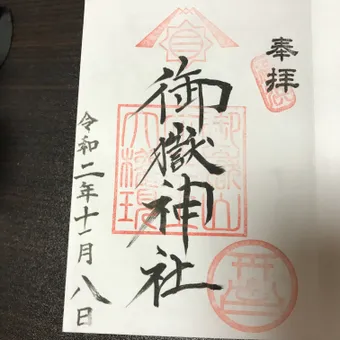 奉拝
御嶽神社
令和二年十一月八日